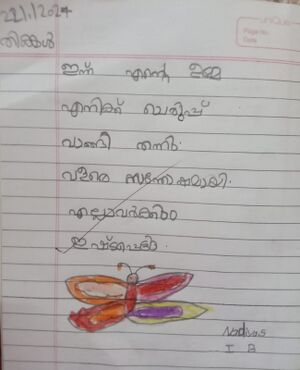 22/1/2024
തിങ്കൾ
Page No:
Date
ഇന്ന് എന്റെ ഉമ്മ
എനിക്ക് ചെരുപ്പ്
വാങ്ങി തന്നു.
വളരെ സന്തോഷമായി.
എല്ലാവർക്കും
ഇഷ്ടപ്പെട്ടു.
I B